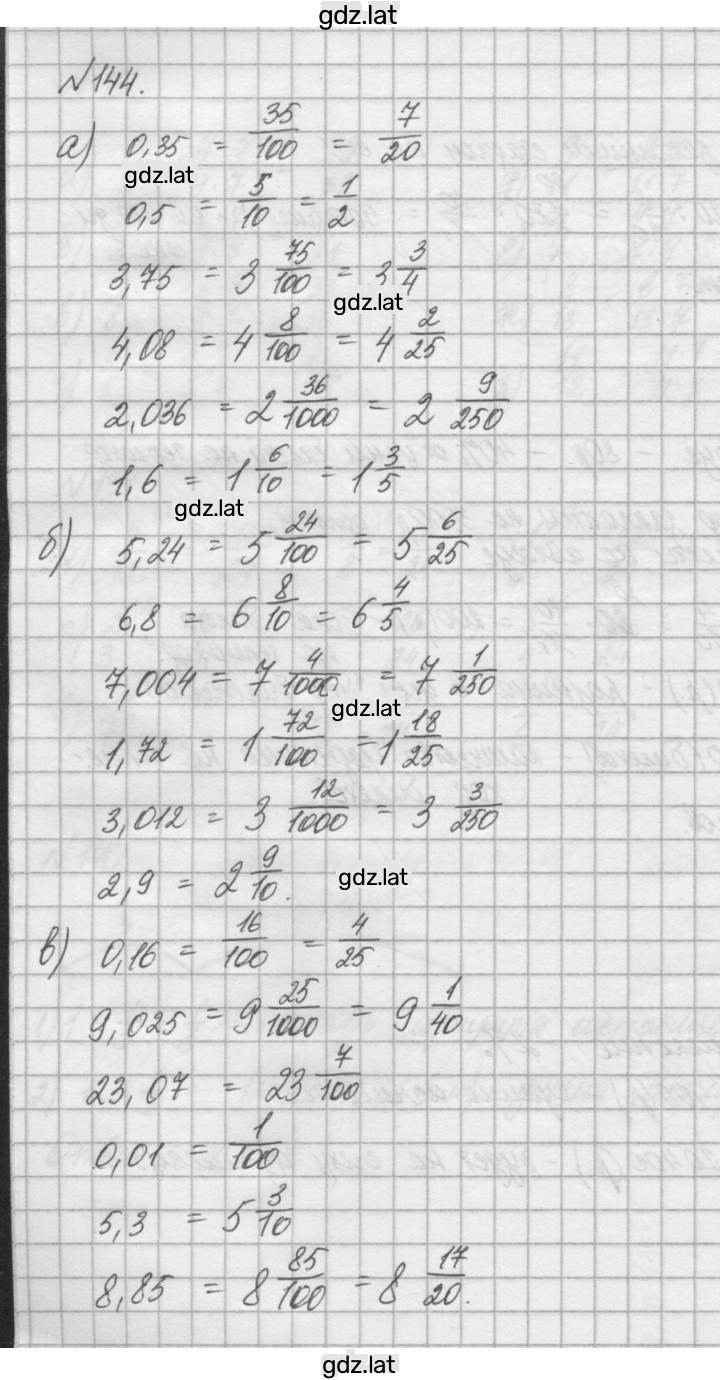 gdz.lat
№144.
а) 0,35 = 35/100 = 7/20
gdz.lat
0,5 = 5/10 = 1/2
3,75 = 3 75/100 = 3 3/4
gdz.lat
4,08 = 4 8/100 = 4 2/25
2,036 = 2 36/1000 = 2 9/250
1,6 = 1 6/10 = 1 3/5
gdz.lat
б) 5,24 = 5 24/100 = 5 6/25
6,8 = 6 8/10 = 6 4/5
7,004 = 7 4/1000 = 7 1/250
gdz.lat
1,72 = 1 72/100 = 1 18/25
3,012 = 3 12/1000 = 3 3/250
2,9 = 2 9/10.
gdz.lat
в) 0,16 = 16/100 = 4/25.
9,025 = 9 25/1000 = 9 1/40
23,07 = 23 7/100
0,01 = 1/100
5,3 = 5 3/10
8,85 = 8 85/100 = 8 17/20.
gdz.lat